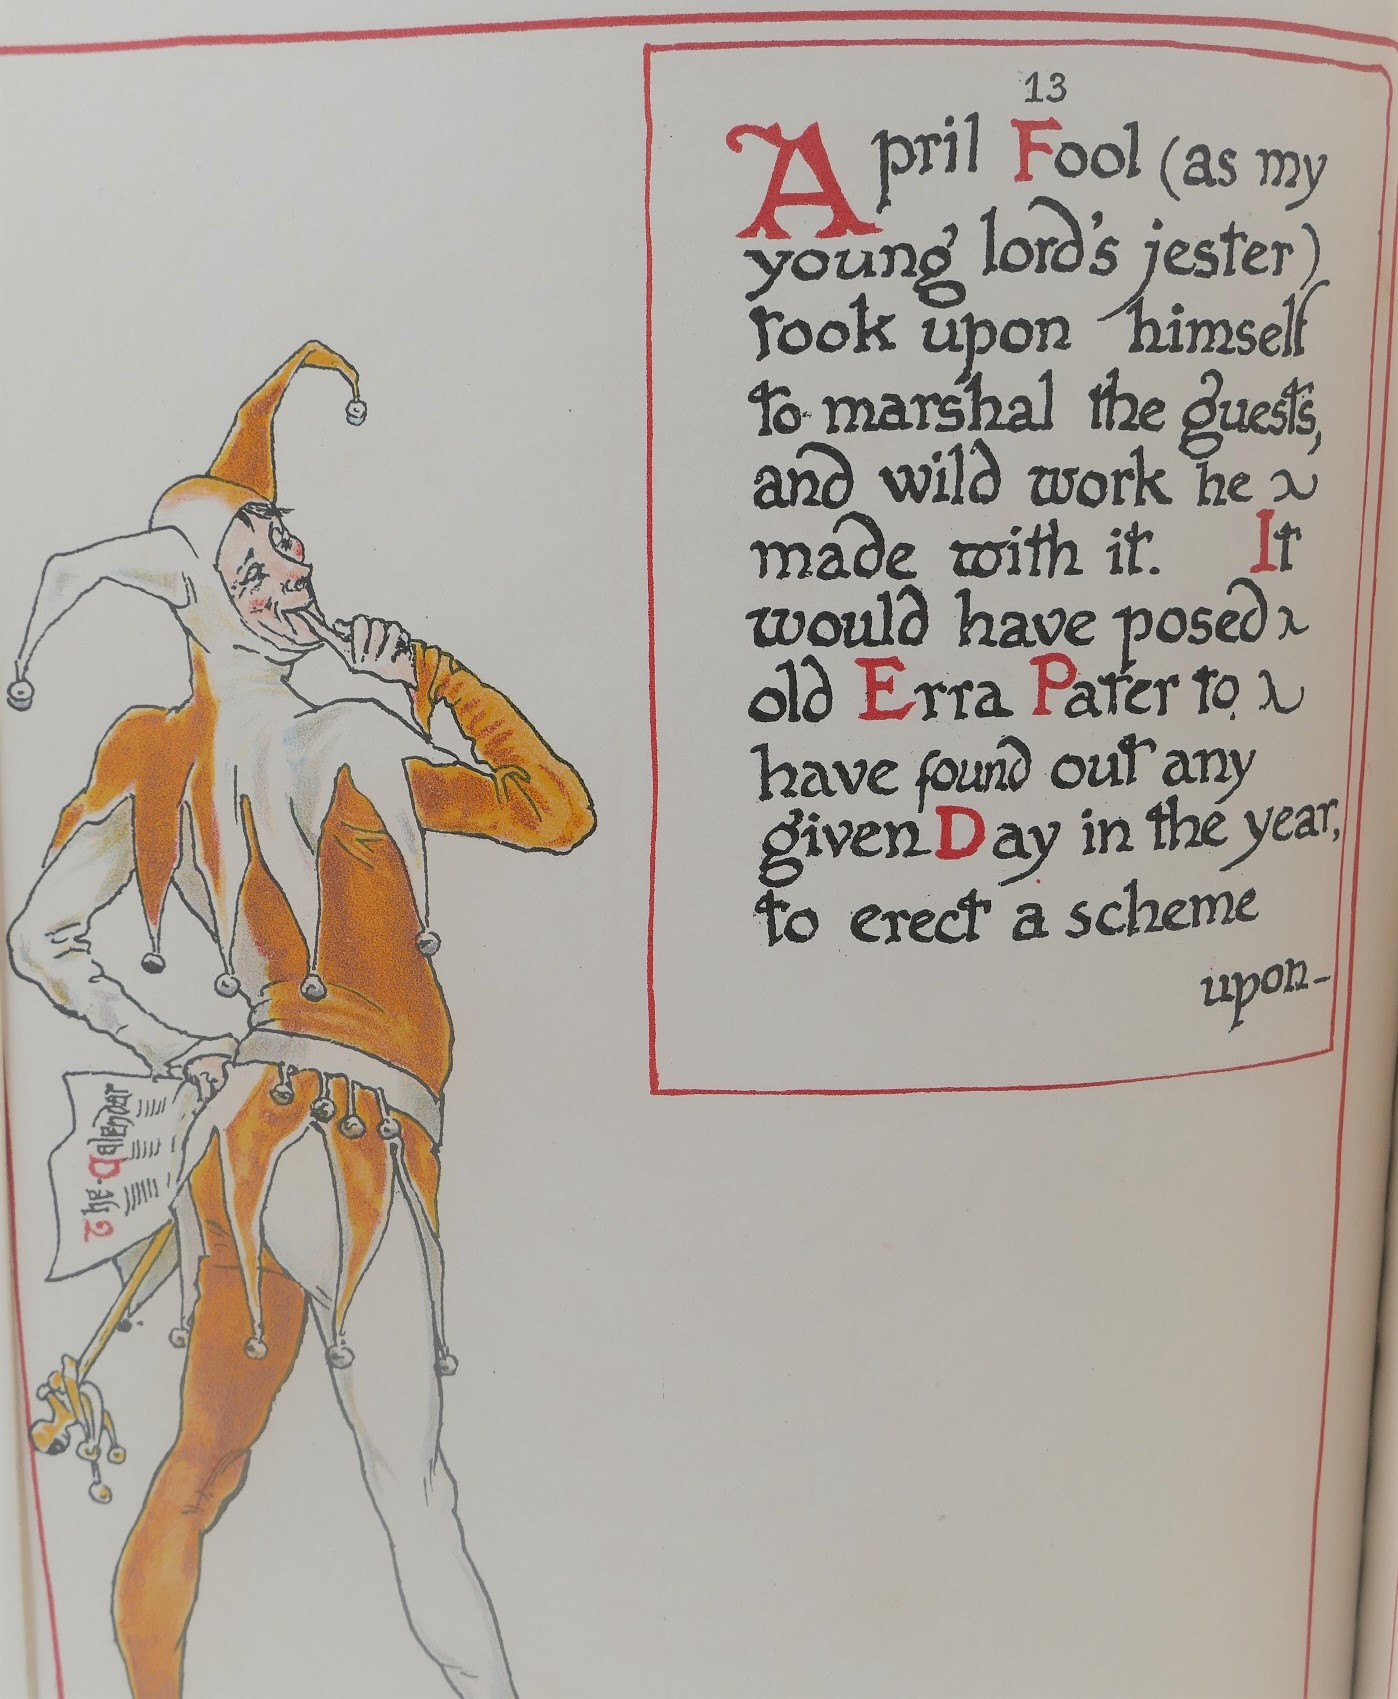 13
April Fool (as my
young lord's jester)
took upon himself
to marshal the guests,
and wild work he
made with it. It
would have posed
old Erra Pater to
have found out any
given Day in the year,
to erect a scheme
upon-
The Calender